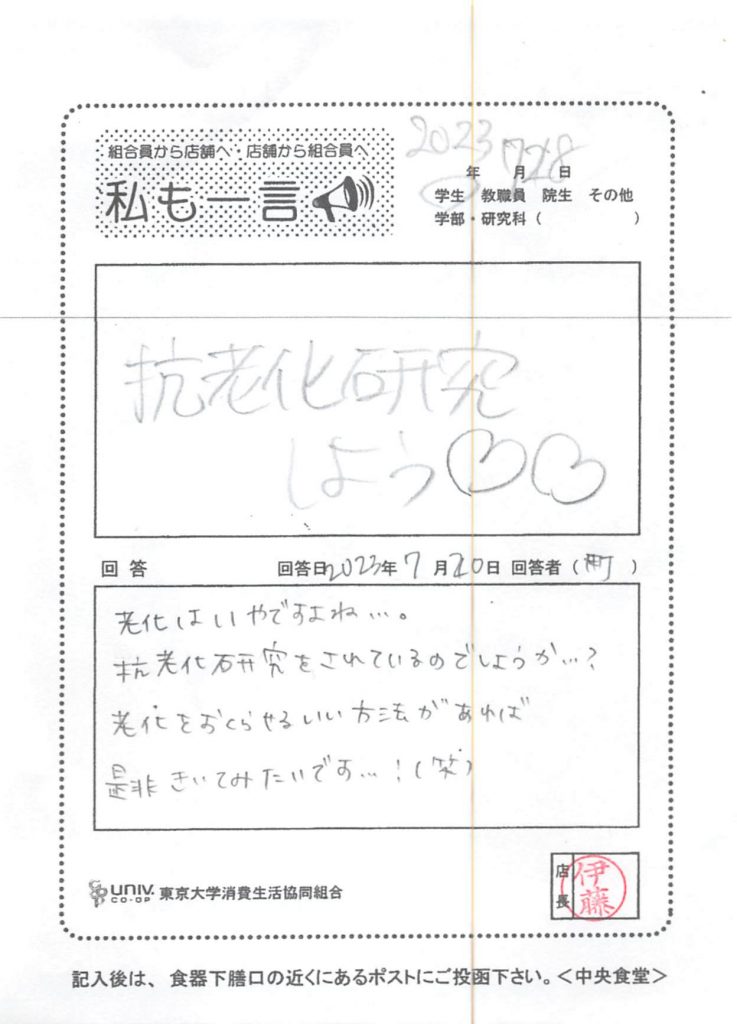 組合員から店舗へ・店舗から組合員へ
私も一言
2023年 7月 18日
学生 教職員 院生 その他
学部・研究科（ ）
抗老化研究
しよう♡♡
回答 回答日2023年 7月20日 回答者（町）
老化はいやですよね…。
抗老化研究をされているのでしょうか…?
老化をおくらせるいい方法があれば
是非きいてみたいです…!(笑)
店長 伊藤
CO-OP UNIV. CO-OP 東京大学消費生活協同組合
記入後は、食器下膳口の近くにあるポストにご投函下さい。＜中央食堂＞